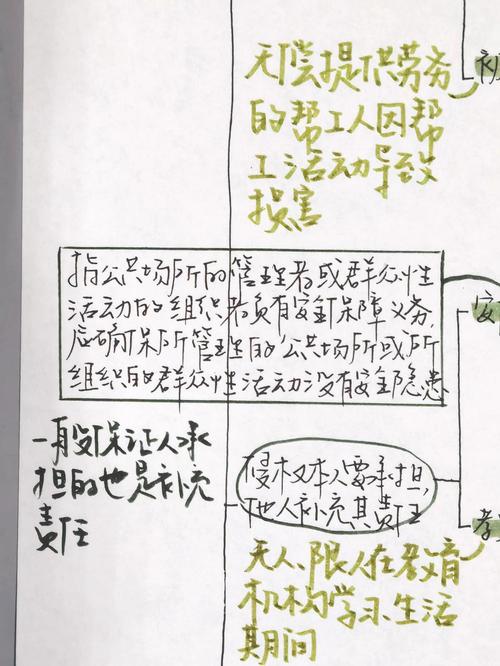 无偿提供劳务
的帮工人因帮
工活动导致
损害
指公共场所的管理者或群众性
活动的组织者负有安全保障义务,
应确保所管理的公共场所或所
组织的群众性活动没有安全隐患
一般保证人承
担的也是补充
责任
侵权本人要承担,
他人补充其责任
无人、限人在教育
机构学习、生活
期间
安
教